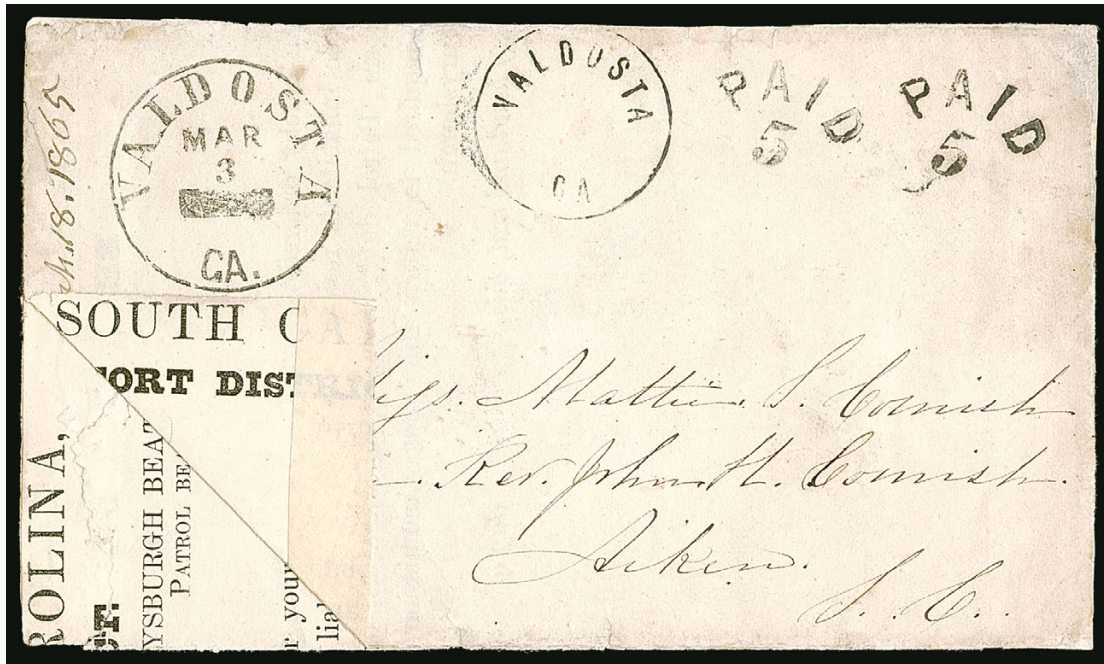 VALDOSTA
MAR
3
GA.
VALDOSTA
GA
PAID
5
PAID
5
18. 1865
SOUTH C
FORT DIST
ROLINA,
YSBURGH BEAT
PATROL BE
r your
lial
Miss. Mattie S. Cornish
Rev. John H. Cornish.
Aiken.
S. C.